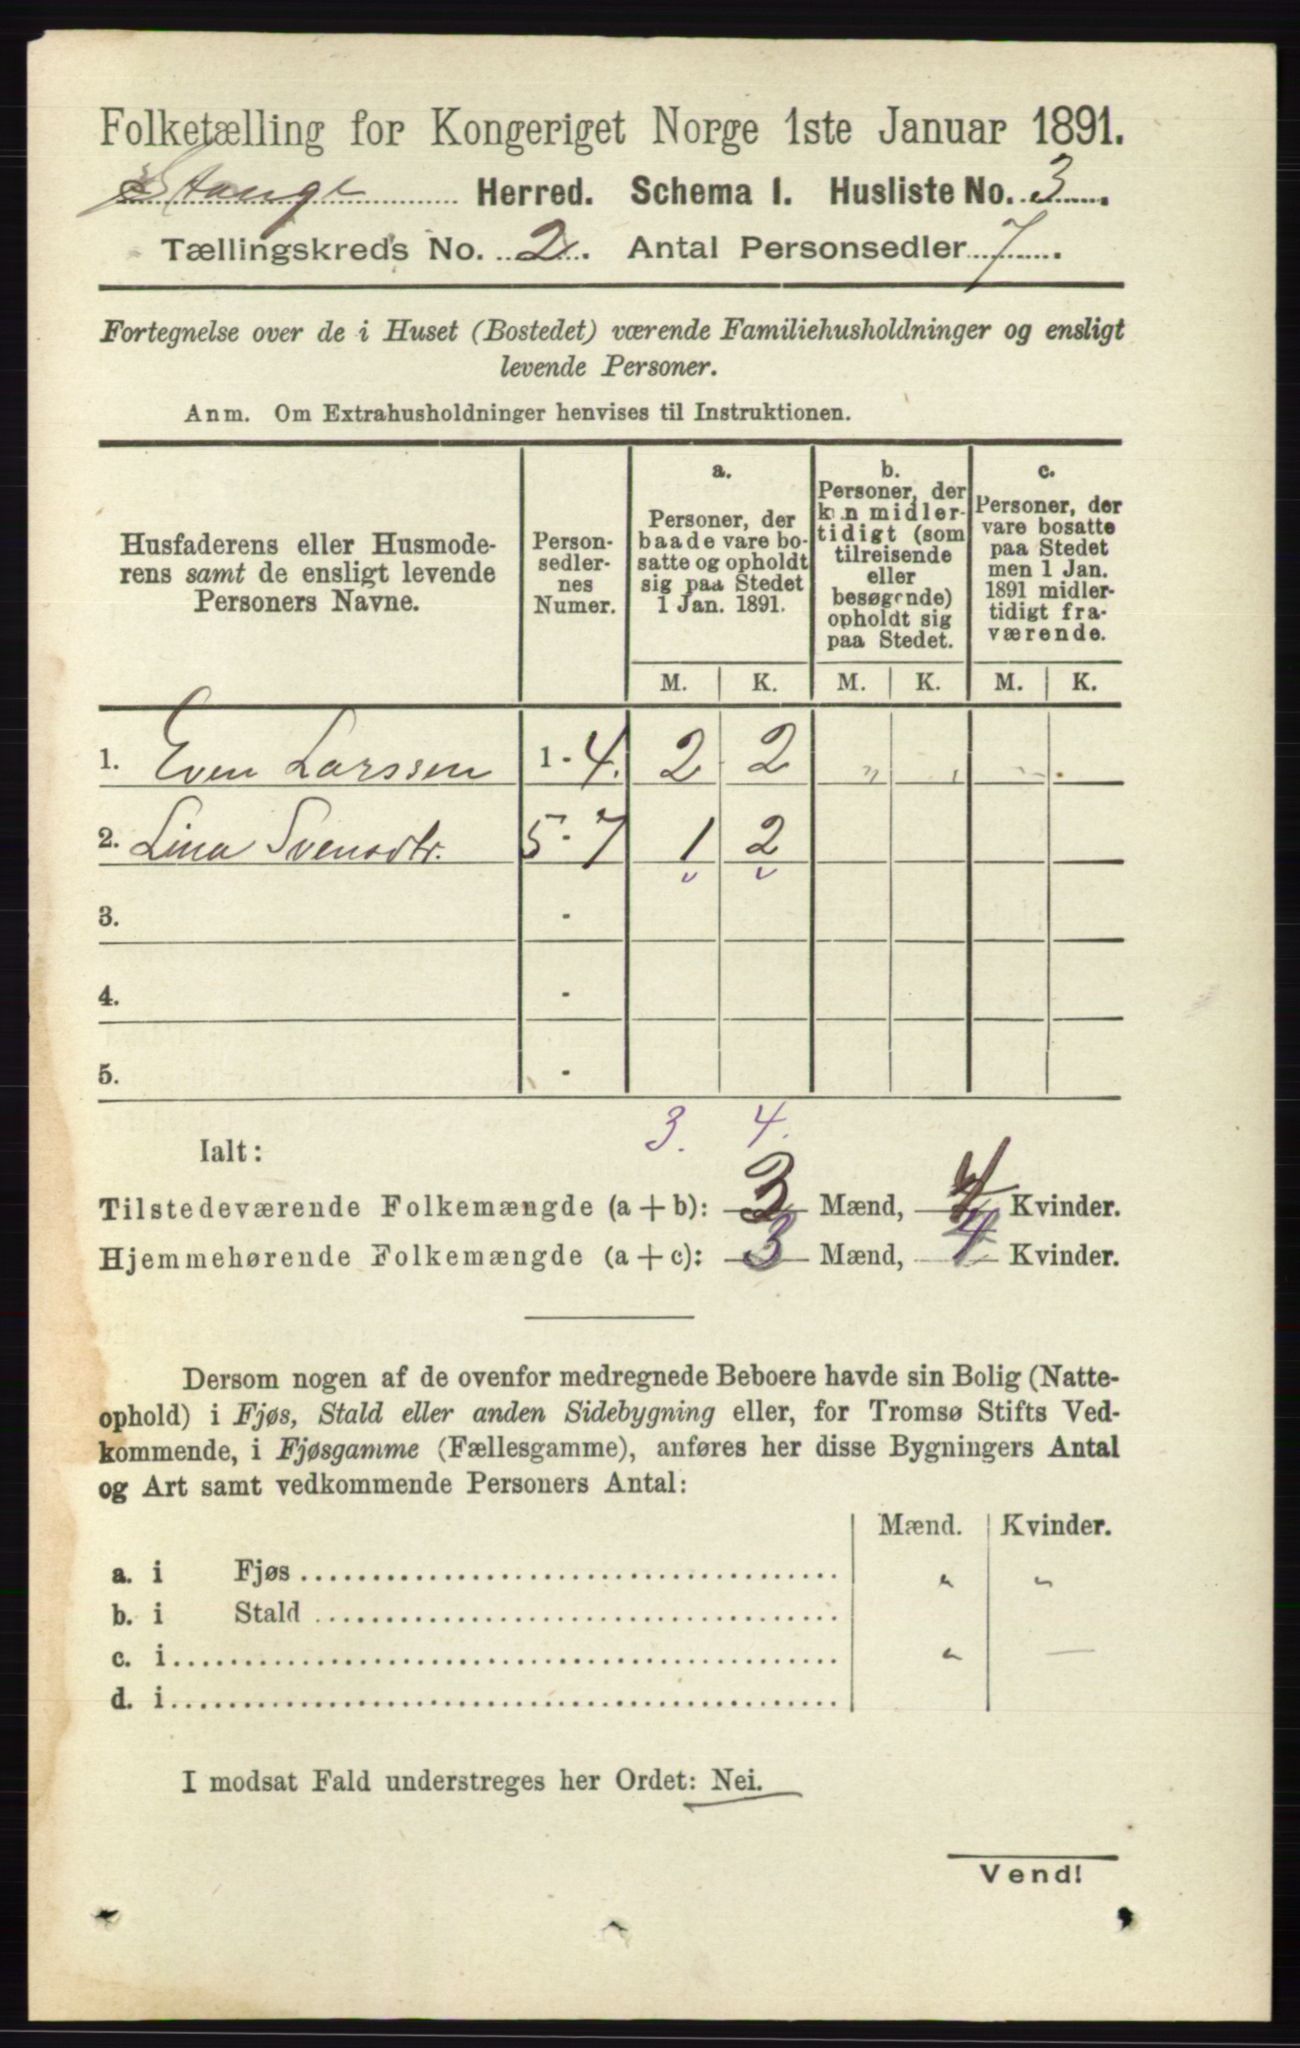 Folketælling for Kongeriget Norge 1ste Januar 1891.
Stange Herred. Schema 1. Husliste No. 3
Tællingskreds No. 2. Antal Personsedler 7
Fortegnelse over de i Huset (Bostedet) værende Familiehusholdninger og ensligt
levende Personer.
Anm. Om Extrahusholdninger henvises til Instruktionen.
Husfaderens eller Husmode-
rens samt de ensligt levende
Personers Navne.
Person-
sedler-
nes
Numer.
a.
Personer, der
baade vare bo-
satte og opholdt
sig paa Stedet
1 Jan. 1891.
b.
Personer, der
kun midler-
tidigt (som
tilreisende
eller
besøgende)
opholdt sig
paa Stedet.
c.
Personer, der
vare bosatte
paa Stedet
men 1 Jan.
1891 midler-
tidigt fra-
værende.
M. K. M. K. M. K.
1. Even Larssen 1 - 4. 2 2 " "
2. Lina Svensdtr. 5 - 7 1 2
3. -
4. -
5. -
3. 4.
Ialt:
Tilstedeværende Folkemængde (a + b): 3 Mænd, 4 Kvinder.
Hjemmehørende Folkemængde (a + c): 3 Mænd, 4 Kvinder.
Dersom nogen af de ovenfor medregnede Beboere havde sin Bolig (Natte-
ophold) i Fjøs, Stald eller anden Sidebygning eller, for Tromsø Stifts Ved-
kommende, i Fjøsgamme (Fællesgamme), anføres her disse Bygningers Antal
og Art samt vedkommende Personers Antal:
Mænd. Kvinder.
a. i Fjøs " "
b. i Stald
c. i " —
d. i
I modsat Fald understreges her Ordet: Nei.
Vend!